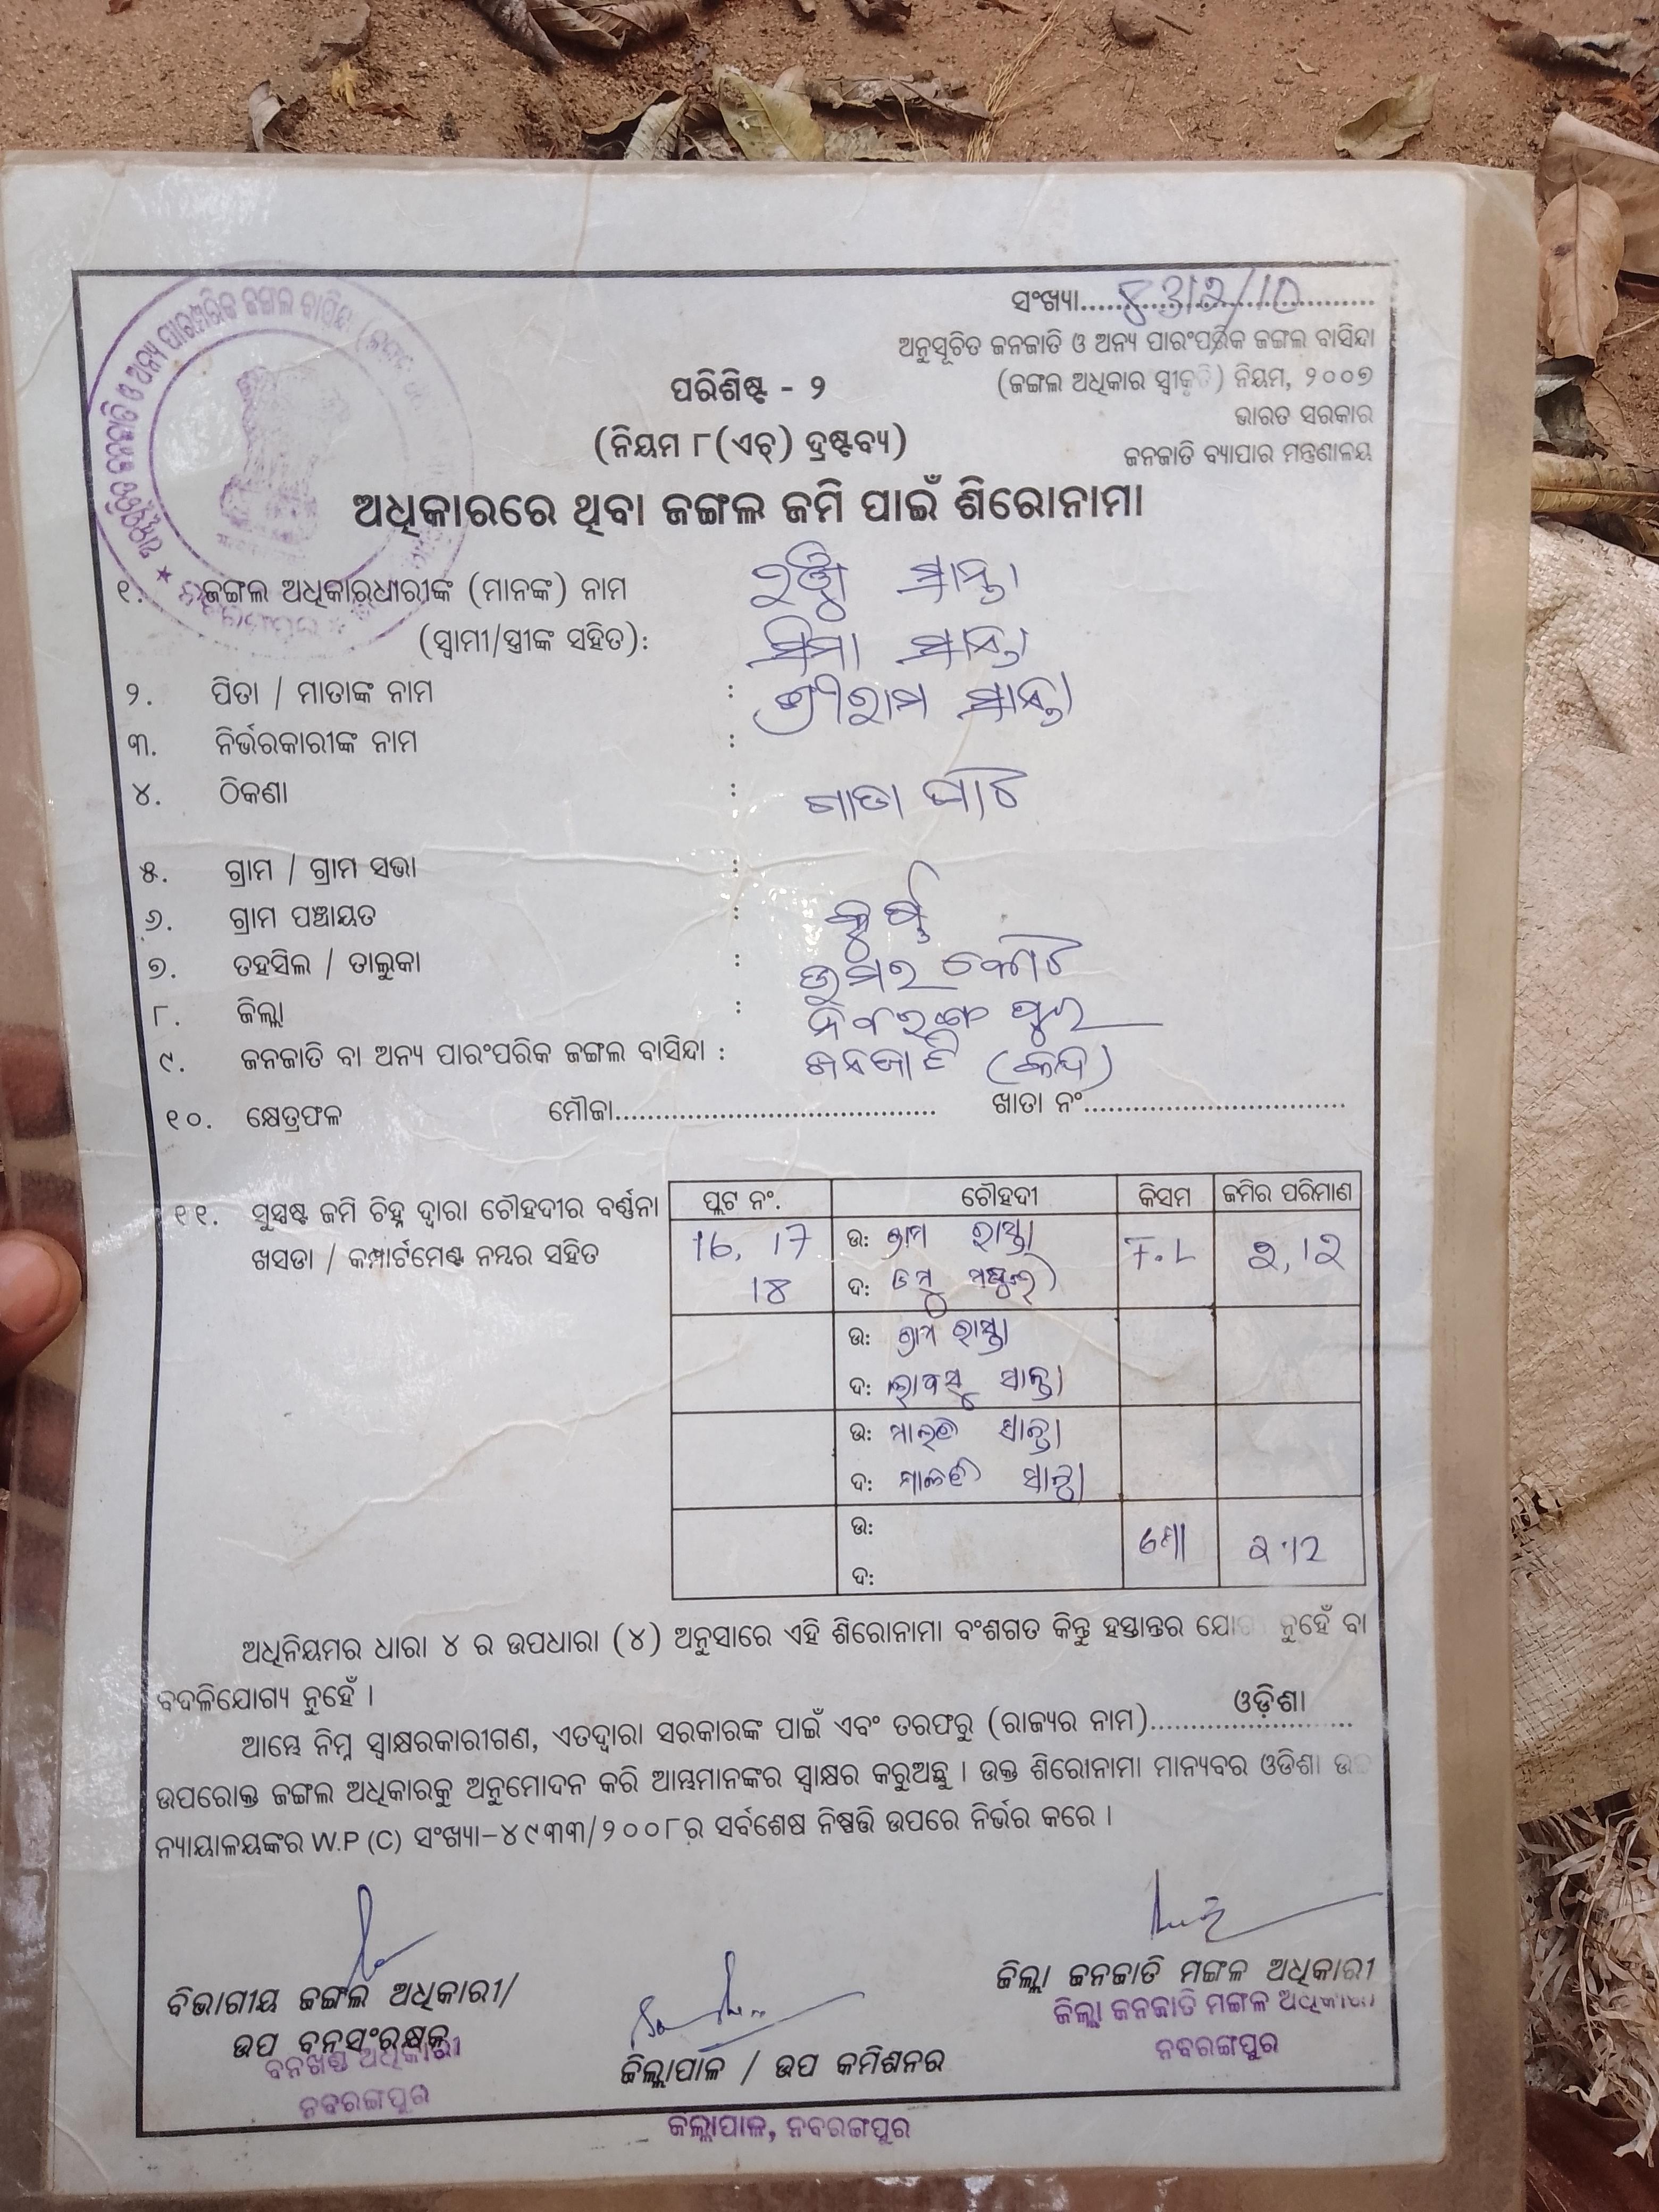 ସଂଖ୍ୟା
ଅନୁସୂଚିତ ଜନଜାତି ଓ ଅନ୍ୟ ପାରଂପରିକ ଜଙ୍ଗଲ ବାସିନ୍ଦା
(ଜଙ୍ଗଲ ଅଧିକାର ସ୍ୱୀକୃତି) ନିୟମ, ୨୦୦୭
ଭାରତ ସରକାର
ଜନଜାତି ବ୍ୟାପାର ମନ୍ତ୍ରଣାଳୟ
ପରିଶିଷ୍ଟ - ୨
(ନିୟମ ୮(ଏଚ୍) ଦ୍ରଷ୍ଟବ୍ୟ)
ଅଧିକାରରେ ଥିବା ଜଙ୍ଗଲ ଜମି ପାଇଁ ଶିରୋନାମା
୧. ଜଙ୍ଗଲ ଅଧିକାରଧାରୀଙ୍କ (ମାନଙ୍କ) ନାମ
(ସ୍ୱାମୀ/ସ୍ତ୍ରୀଙ୍କ ସହିତ):
୨. ପିତା / ମାତାଙ୍କ ନାମ : ଶ୍ରୀରାମ ସାନ୍ତା
୩. ନିର୍ଭରକାରୀଙ୍କ ନାମ :
୪. ଠିକଣା :
୫. ଗ୍ରାମ / ଗ୍ରାମ ସଭା :
୬. ଗ୍ରାମ ପଞ୍ଚାୟତ :
୭. ତହସିଲ / ତାଲୁକା : ଉମରକୋଟ
୮. ଜିଲ୍ଲା : ନବରଙ୍ଗପୁର
୯. ଜନଜାତି ବା ଅନ୍ୟ ପାରଂପରିକ ଜଙ୍ଗଲ ବାସିନ୍ଦା : ଜନଜାତି
୧୦. କ୍ଷେତ୍ରଫଳ ମୌଜା........................................ ଖାତା ନଂ................................
୧୧. ସୁସ୍ପଷ୍ଟ ଜମି ଚିହ୍ନ ଦ୍ୱାରା ଚୌହଦୀର ବର୍ଣ୍ଣନା
ଖସଡା / କମ୍ପାର୍ଟମେଣ୍ଟ ନମ୍ବର ସହିତ
ପ୍ଲଟ ନଂ. ଚୌହଦୀ କିସମ ଜମିର ପରିମାଣ
16, 17 ଉ: ଗ୍ରାମ ରାସ୍ତା F.L 2,12
18 ଦ:
ଉ: ଗ୍ରାମ ରାସ୍ତା
ଦ: ସାନ୍ତା
ଉ: ସାନ୍ତା
ଦ: ସାନ୍ତା
ଉ: ମୋ 2.12
ଦ:
ଅଧିନିୟମର ଧାରା ୪ ର ଉପଧାରା (୪) ଅନୁସାରେ ଏହି ଶିରୋନାମା ବଂଶଗତ କିନ୍ତୁ ହସ୍ତାନ୍ତର ନୁହେଁ ବା
ବଦଳିଯୋଗ୍ୟ ନୁହେଁ ।
ଆମ୍ଭେ ନିମ୍ନ ସ୍ୱାକ୍ଷରକାରୀଗଣ, ଏତଦ୍ଦ୍ୱାରା ସରକାରଙ୍କ ପାଇଁ ଏବଂ ତରଫରୁ (ରାଜ୍ୟର ନାମ) ଓଡ଼ିଶା
ଉପରୋକ୍ତ ଜଙ୍ଗଲ ଅଧିକାରକୁ ଅନୁମୋଦନ କରି ଆମ୍ଭମାନଙ୍କର ସ୍ୱାକ୍ଷର କରୁଅଛୁ । ଉକ୍ତ ଶିରୋନାମା ମାନ୍ୟବର ଓଡିଶା
ନ୍ୟାୟାଳୟଙ୍କର W.P (C) ସଂଖ୍ୟା-୪୯୩୩/୨୦୦୮ର ସର୍ବଶେଷ ନିଷ୍ପତ୍ତି ଉପରେ ନିର୍ଭର କରେ ।
ବିଭାଗୀୟ ଜଙ୍ଗଲ ଅଧିକାରୀ/
ଉପ ବନସଂରକ୍ଷକ
ବନଖଣ୍ଡ ଅଧିକାରୀ
ନବରଙ୍ଗପୁର
ଜିଲ୍ଲାପାଳ / ଉପ କମିଶନର
ଜିଲ୍ଲାପାଳ, ନବରଙ୍ଗପୁର
ଜିଲ୍ଲା ଜନଜାତି ମଙ୍ଗଳ ଅଧିକାରୀ
ଜିଲ୍ଲା ଜନଜାତି ମଙ୍ଗଳ ଅଧିକାରୀ
ନବରଙ୍ଗପୁର